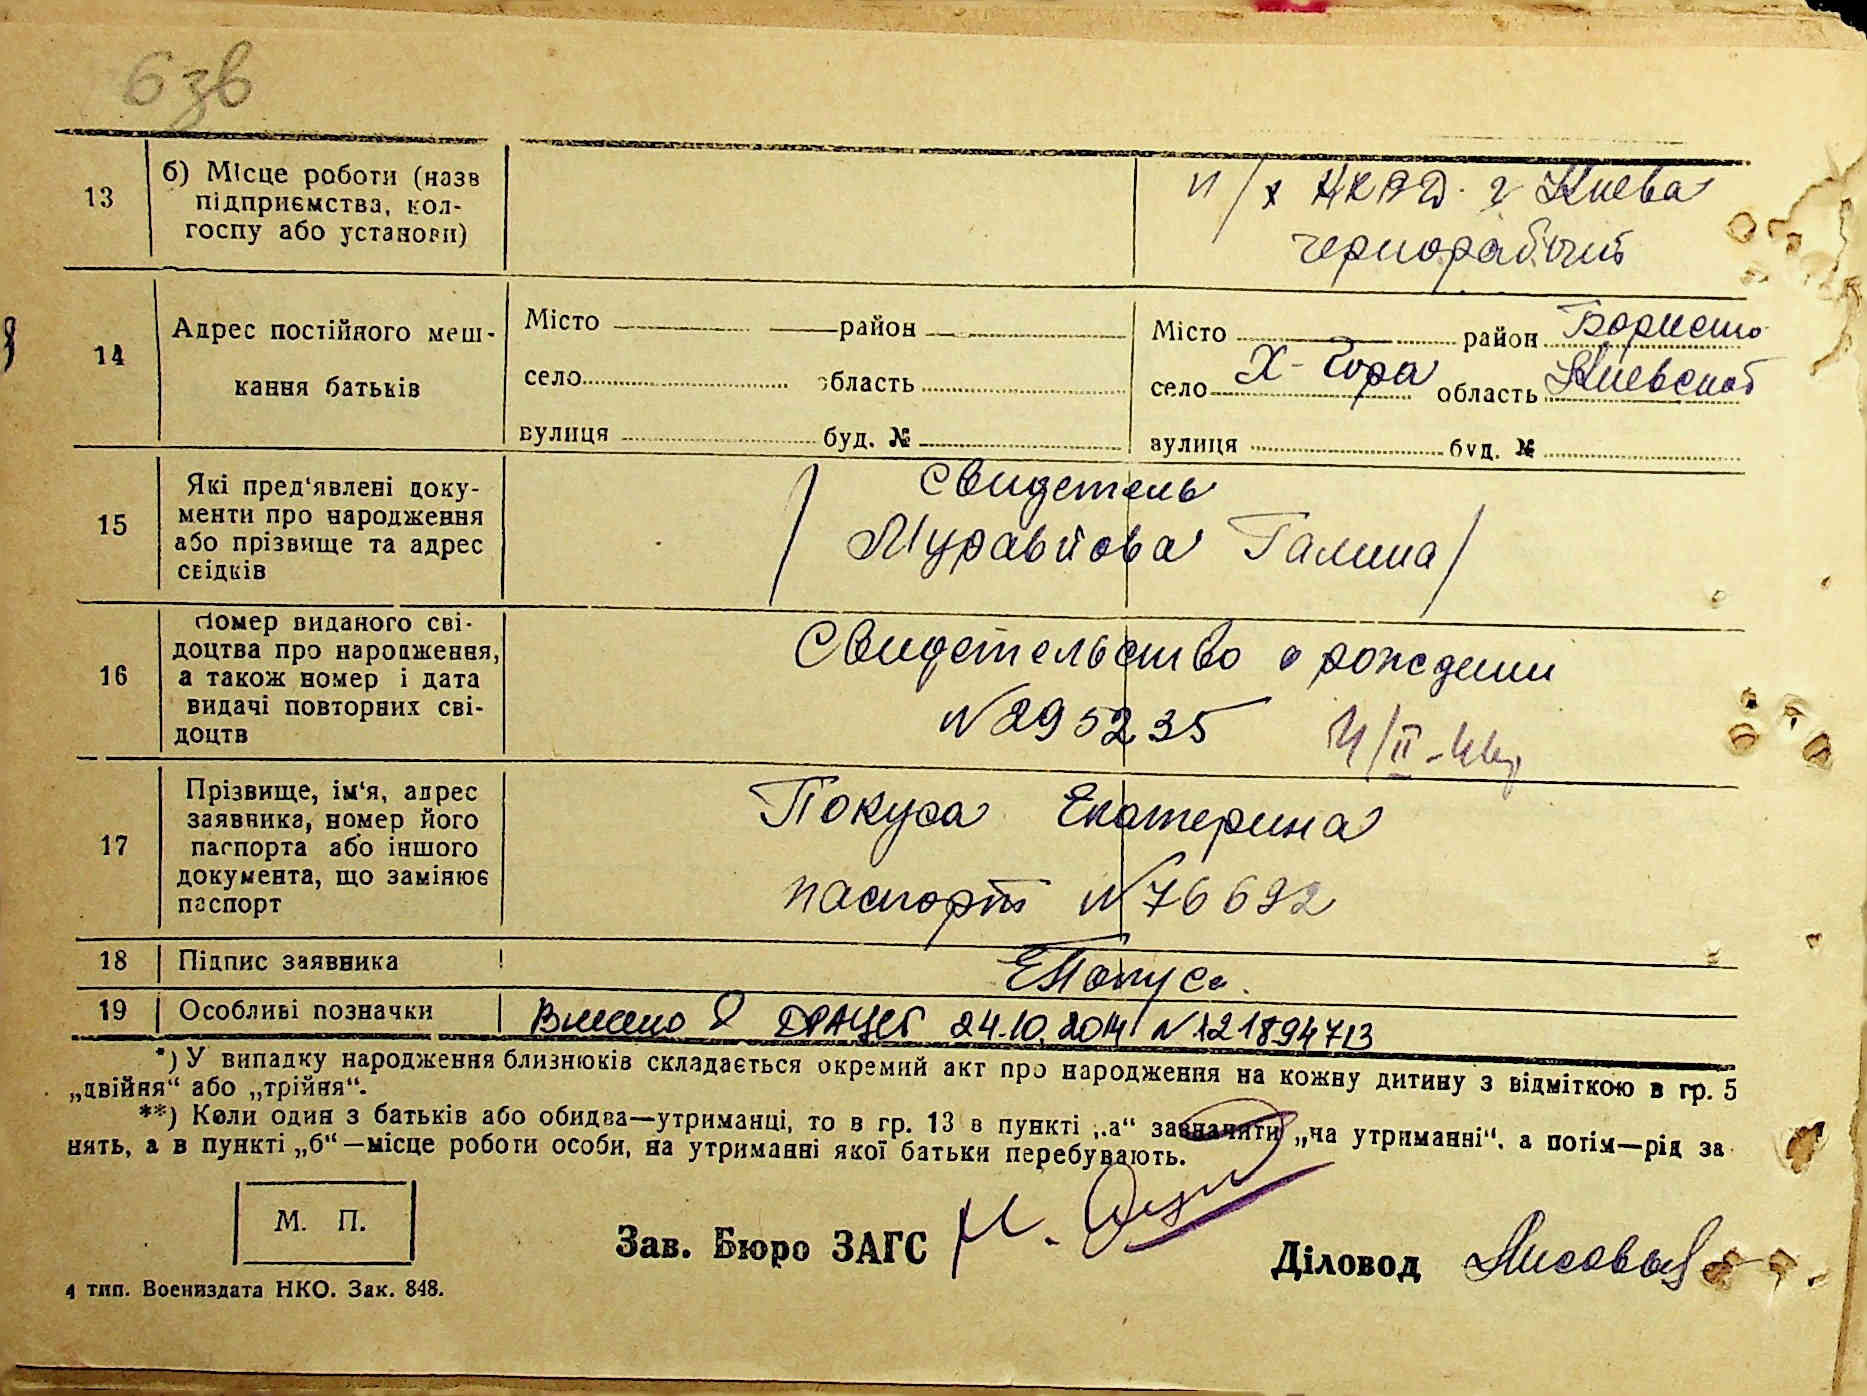 6 зв
13
б) Місце роботи (назв
підприємства, кол-
госпу або установи)
п/х НКВД г Киева
чернорабочий
14
Адрес постійного меш-
кання батьків
Місто район
село область
вулиця буд. №
Місто район Борисло
село Х-Гора область Киевской
вулиця буд. №
15
Які пред'явлені доку-
менти про народження
або прізвище та адрес
свідків
/ Свидетель
Муравйова Галина /
16
Номер виданого сві-
доцтва про народження,
а також номер і дата
видачі повторних сві-
доцтв
Свидетельство о рождении
№ 295235 14/II-44г
17
Прізвище, ім'я, адрес
заявника, номер його
паспорта або іншого
документа, що замінює
паспорт
Покуса Екатерина
паспорт № 76692
18 Підпис заявника
ЕПокуса.
19 Особливі позначки
Внесено в ДРАЦСГ 24.10.2014 № 121894713
*) У випадку народження близнюків складається окремий акт про народження на кожну дитину з відміткою в гр. 5
„двійня“ або „трійня“.
**) Коли один з батьків або обидва—утриманці, то в гр. 13 в пункті „а“ зазначити „на утриманні“, а потім—рід за
нять, а в пункті „б“—місце роботи особи, на утриманні якої батьки перебувають.
М. П.
Зав. Бюро ЗАГС
Діловод Лисовый
4 тип. Воениздата НКО. Зак. 848.